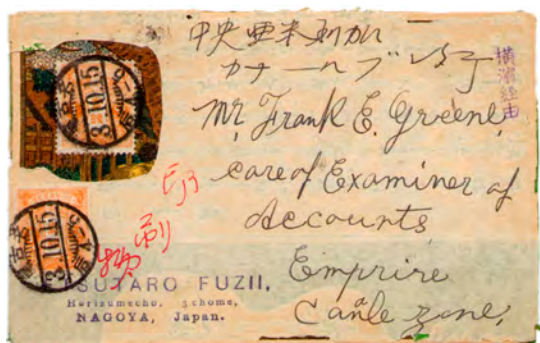 中央亜米利加
カナール
横濱経由
Mr, Frank E. Greene,
care of Examiner of
Accounts
Emprire
Canle zone,
印刷物
3.10.15
3.10.15
SUTARO FUZII,
Horizumecho, 3chome,
NAGOYA, Japan.